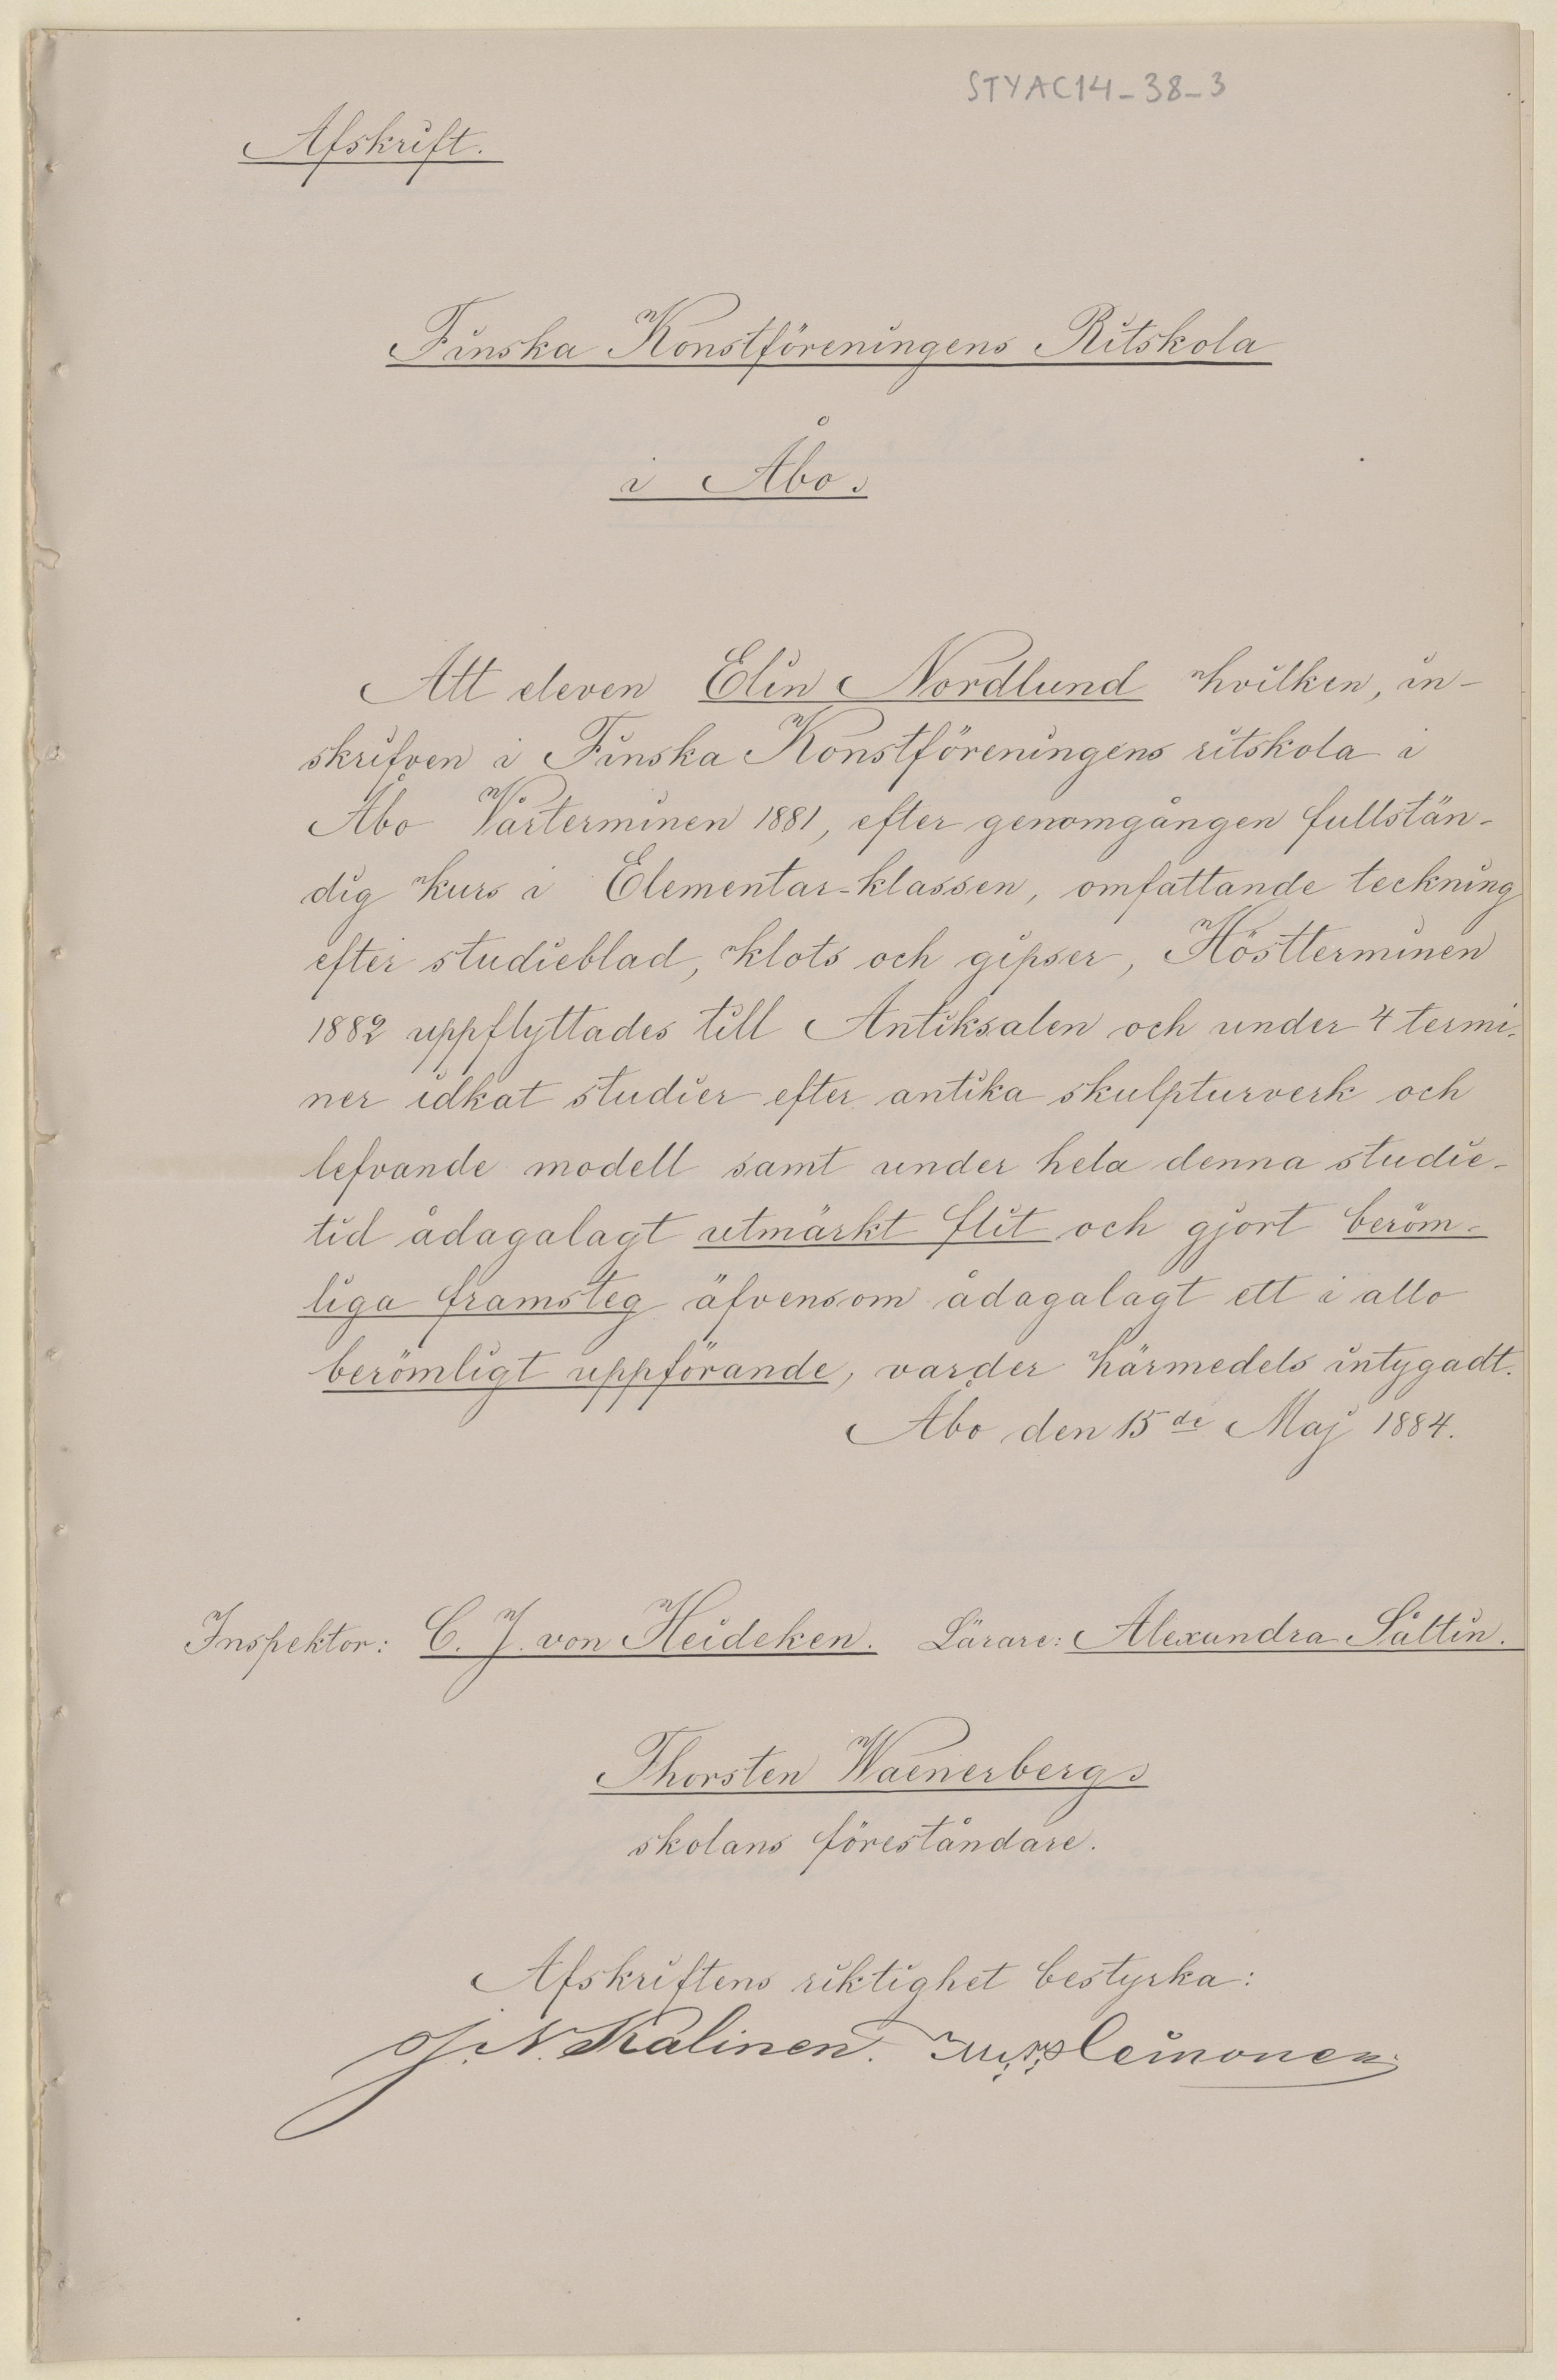 STYAC14-38-3
Afskrift.
Finska Konstföreningens Ritskola
i Åbo.
Att eleven Elin Nordlund hvilken, in-
skrifven i Finska Konstföreningens ritskola i
Åbo Vårterminen 1881, efter genomgången fullstän-
dig kurs i Elementar-klassen, omfattande teckning
efter studieblad, klots och gipser, Höstterminen
1882 uppflyttades till Antiksalen och under 4 termi-
ner idkat studier efter antika skulpturverk och
lefvande modell samt under hela denna studie-
tid ådagalagt utmärkt flit och gjort beröm-
liga framsteg äfvensom ådagalagt ett i allo
berömligt uppförande, varder härmedels intygadt.
Åbo den 15de Maj 1884.
Inspektor: C. J. von Heideken. Lärare: Alexandra Såltin.
Thorsten Waenerberg
skolans föreståndare.
Afskriftens riktighet bestyrka:
J. N. Kalinen.